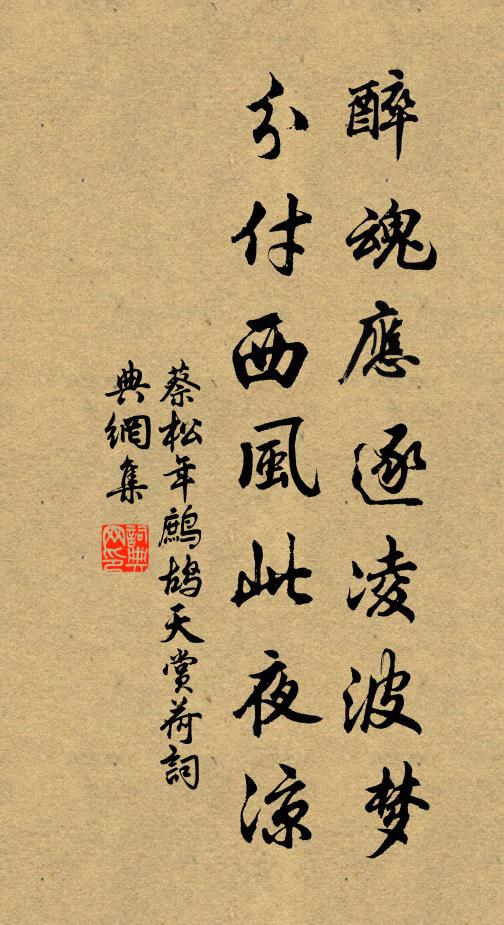 醉魂應逐凌波梦
分付西風此夜凉
蔡松年鷓鴣天賞荷詞
典網集
詞典網印